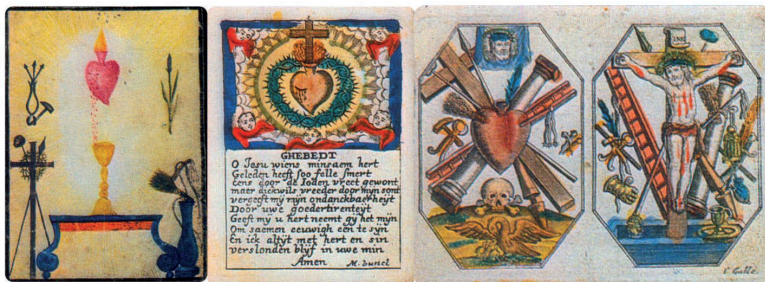 GHEBEDT
O Jesu wiens minsaem hert
Geleden heeft soo felle smert
Eens door de Joden vreet gewont
maer dickwils vreeder door mijn sont
vergeeft mÿ mÿn ondanckbaerheyt
Door uwe goedertirenteyt
Geeft my u hert neemt gy het mÿn
Om saemen eeuwigh een te sÿn
En ick altyt met hert en sin
verslonden blÿf in uwe min
Amen
INRI
C Galle.